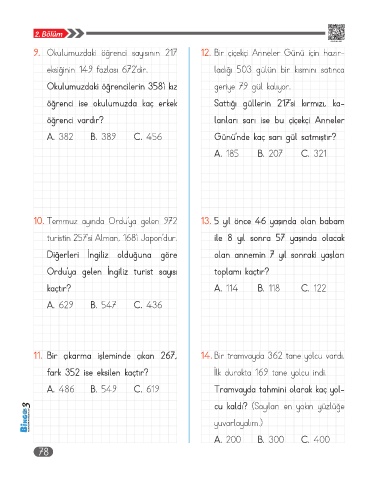 2. Bölüm
9. Okulumuzdaki öğrenci sayısının 217
eksiğinin 149 fazlası 672'dir.
Okulumuzdaki öğrencilerin 358'i kız
öğrenci ise okulumuzda kaç erkek
öğrenci vardır?
A. 382 B. 389 C. 456
10. Temmuz ayında Ordu'ya gelen 972
turistin 257'si Alman, 168'i Japon'dur.
Diğerleri İngiliz olduğuna göre
Ordu'ya gelen İngiliz turist sayısı
kaçtır?
A. 629 B. 547 C. 436
11. Bir çıkarma işleminde çıkan 267,
fark 352 ise eksilen kaçtır?
A. 486 B. 549 C. 619
12. Bir çiçekçi Anneler Günü için hazır-
ladığı 503 gülün bir kısmını satınca
geriye 79 gül kalıyor.
Sattığı güllerin 217'si kırmızı, ka-
lanları sarı ise bu çiçekçi Anneler
Günü'nde kaç sarı gül satmıştır?
A. 185 B. 207 C. 321
13. 5 yıl önce 46 yaşında olan babam
ile 8 yıl sonra 57 yaşında olacak
olan annemin 7 yıl sonraki yaşları
toplamı kaçtır?
A. 114 B. 118 C. 122
14. Bir tramvayda 362 tane yolcu vardı.
İlk durakta 169 tane yolcu indi.
Tramvayda tahmini olarak kaç yol-
cu kaldı? (Sayıları en yakın yüzlüğe
yuvarlayalım.)
A. 200 B. 300 C. 400
BİNGO 3
78